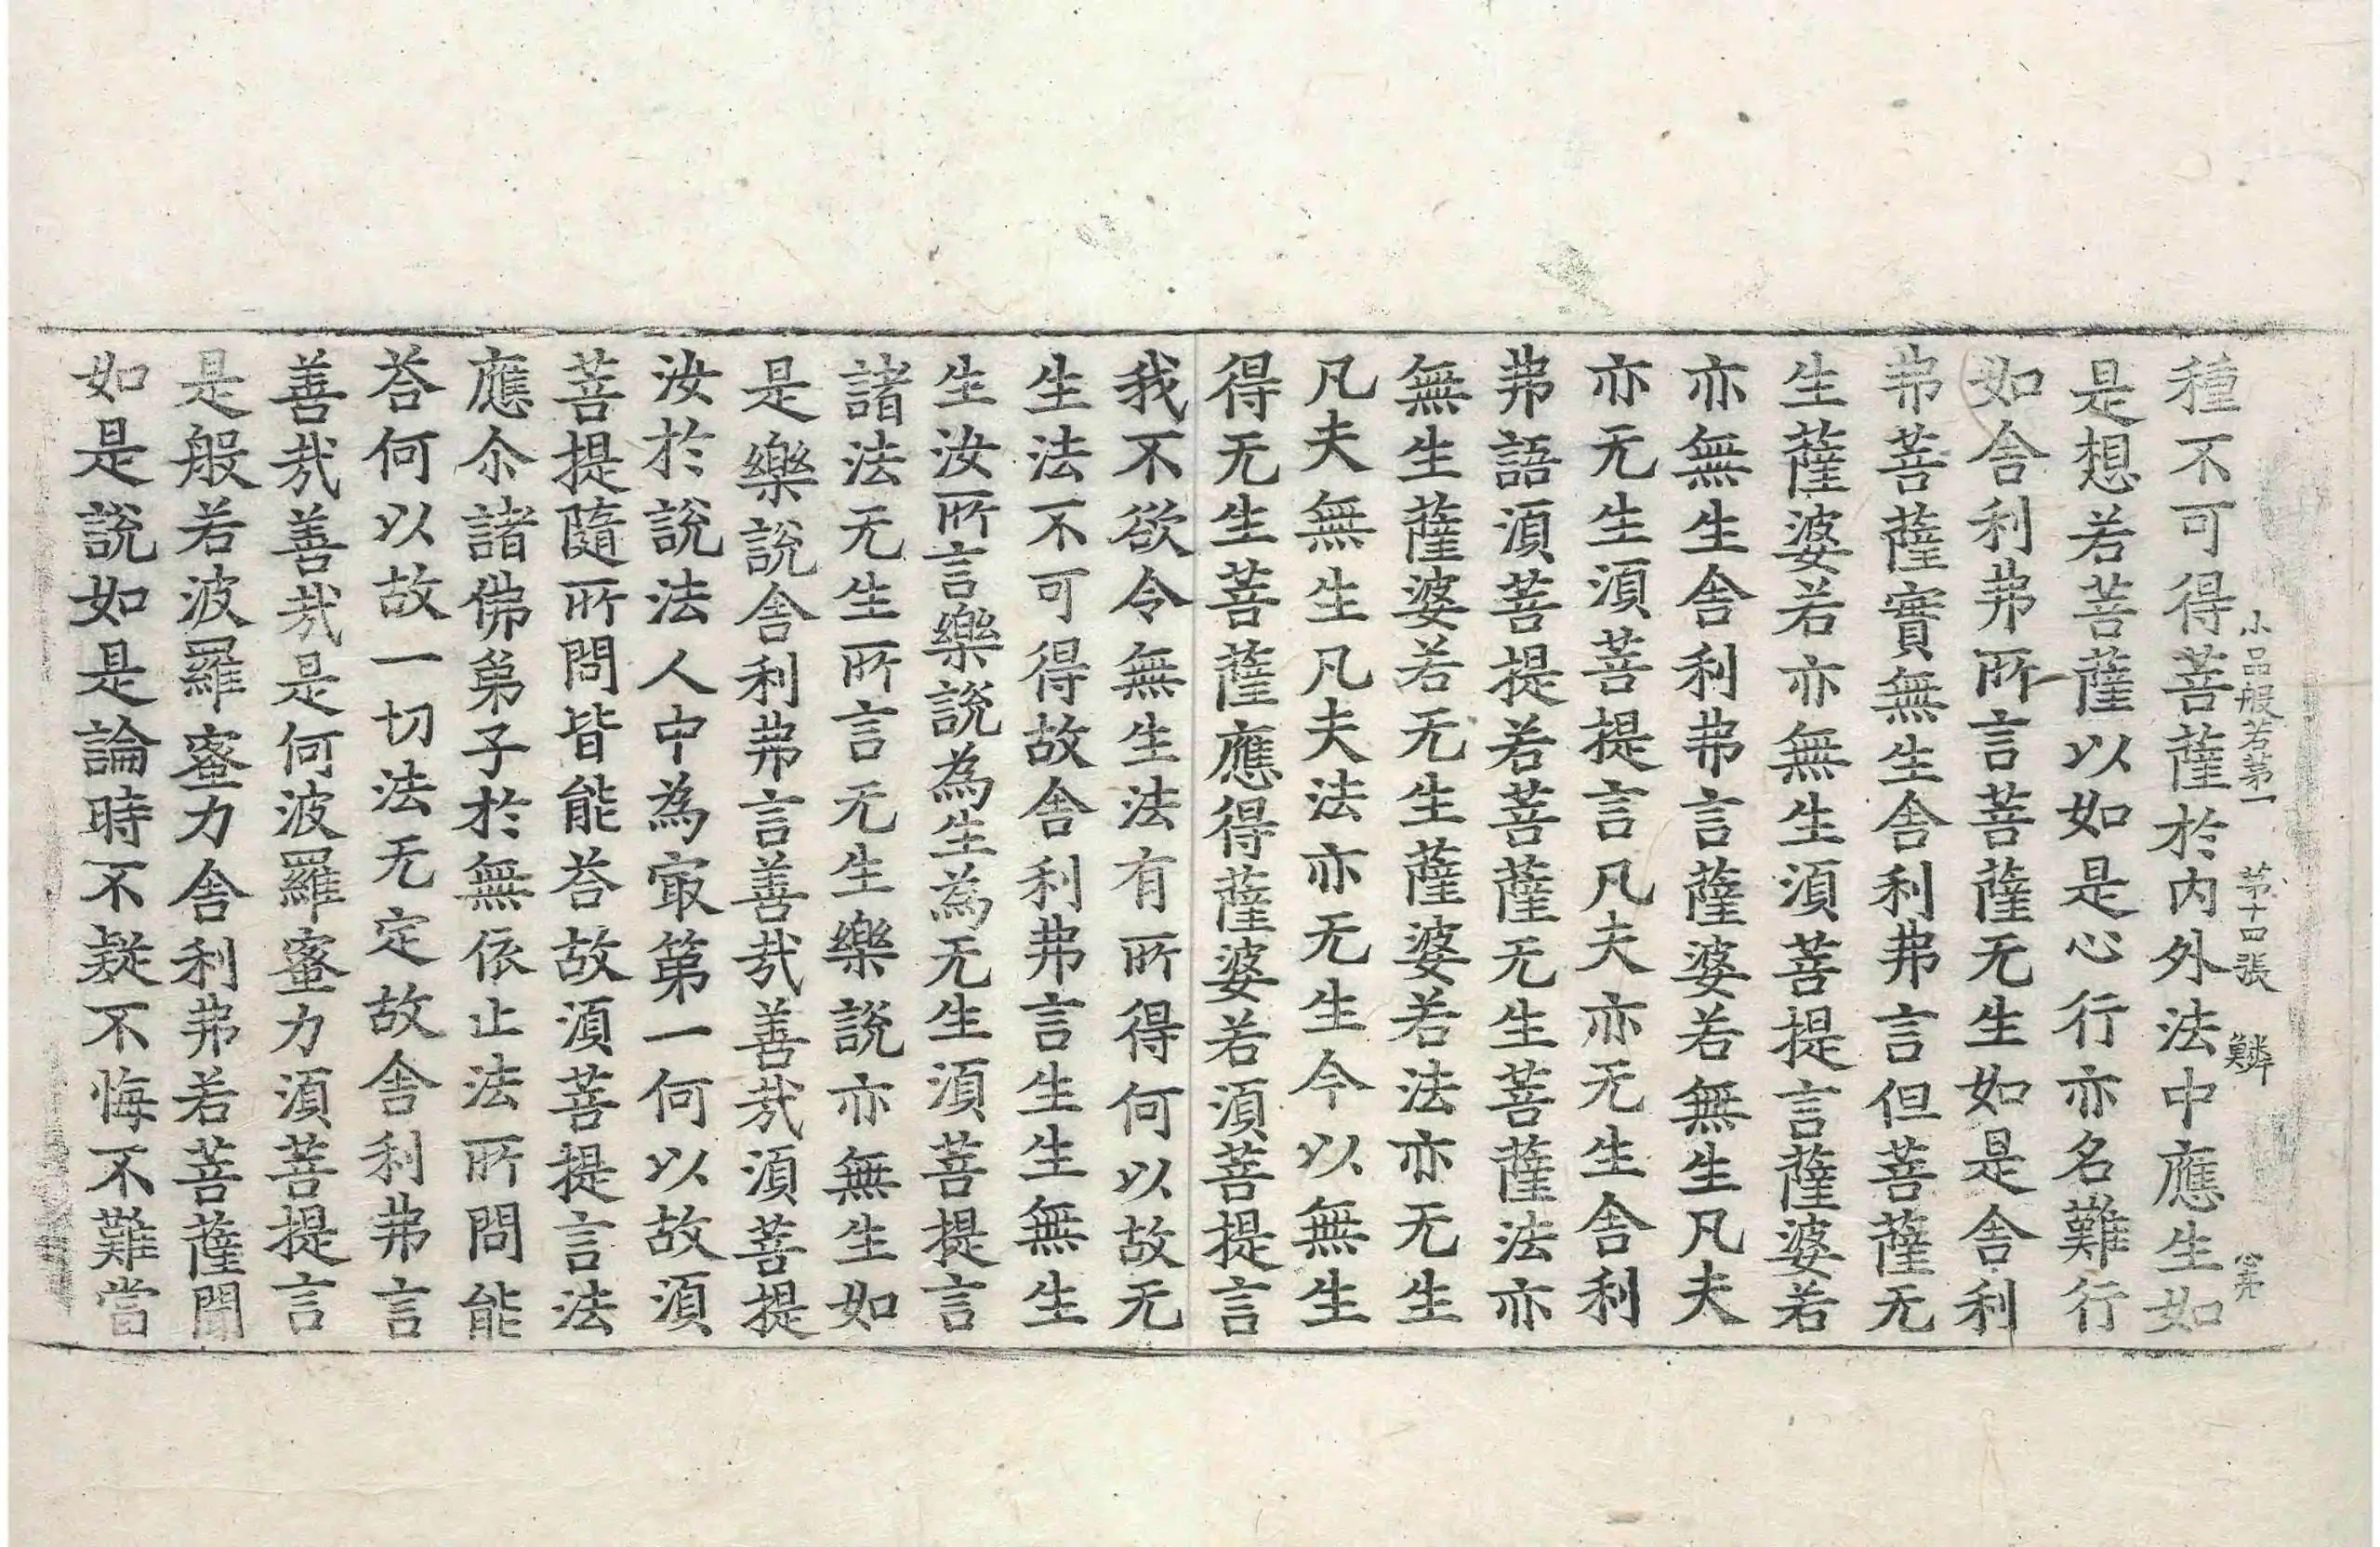 小品般若第一　第十四張　鱗
種不可得菩薩於內外法中應生如
是想若菩薩以如是心行亦名難行
如舍利弗所言菩薩无生如是舍利
弗菩薩實無生舍利弗言但菩薩无
生薩婆若亦無生須菩提言薩婆若
亦無生舍利弗言薩婆若無生凡夫
亦无生須菩提言凡夫亦无生舍利
弗語須菩提若菩薩无生菩薩法亦
無生薩婆若无生薩婆若法亦无生
凡夫無生凡夫法亦无生今以無生
得无生菩薩應得薩婆若須菩提言
我不欲令無生法有所得何以故无
生法不可得故舍利弗言生生無生
生汝所言樂說為生為无生須菩提言
諸法无生所言无生樂說亦無生如
是樂說舍利弗言善㢤善㢤須菩提
汝於說法人中為㝡第一何以故須
菩提隨所問皆能荅故須菩提言法
應尒諸佛弟子於無依止法所問能
荅何以故一切法无定故舍利弗言
善㢤善㢤是何波羅蜜力須菩提言
是般若波羅蜜力舍利弗若菩薩聞
如是說如是論時不疑不悔不難當